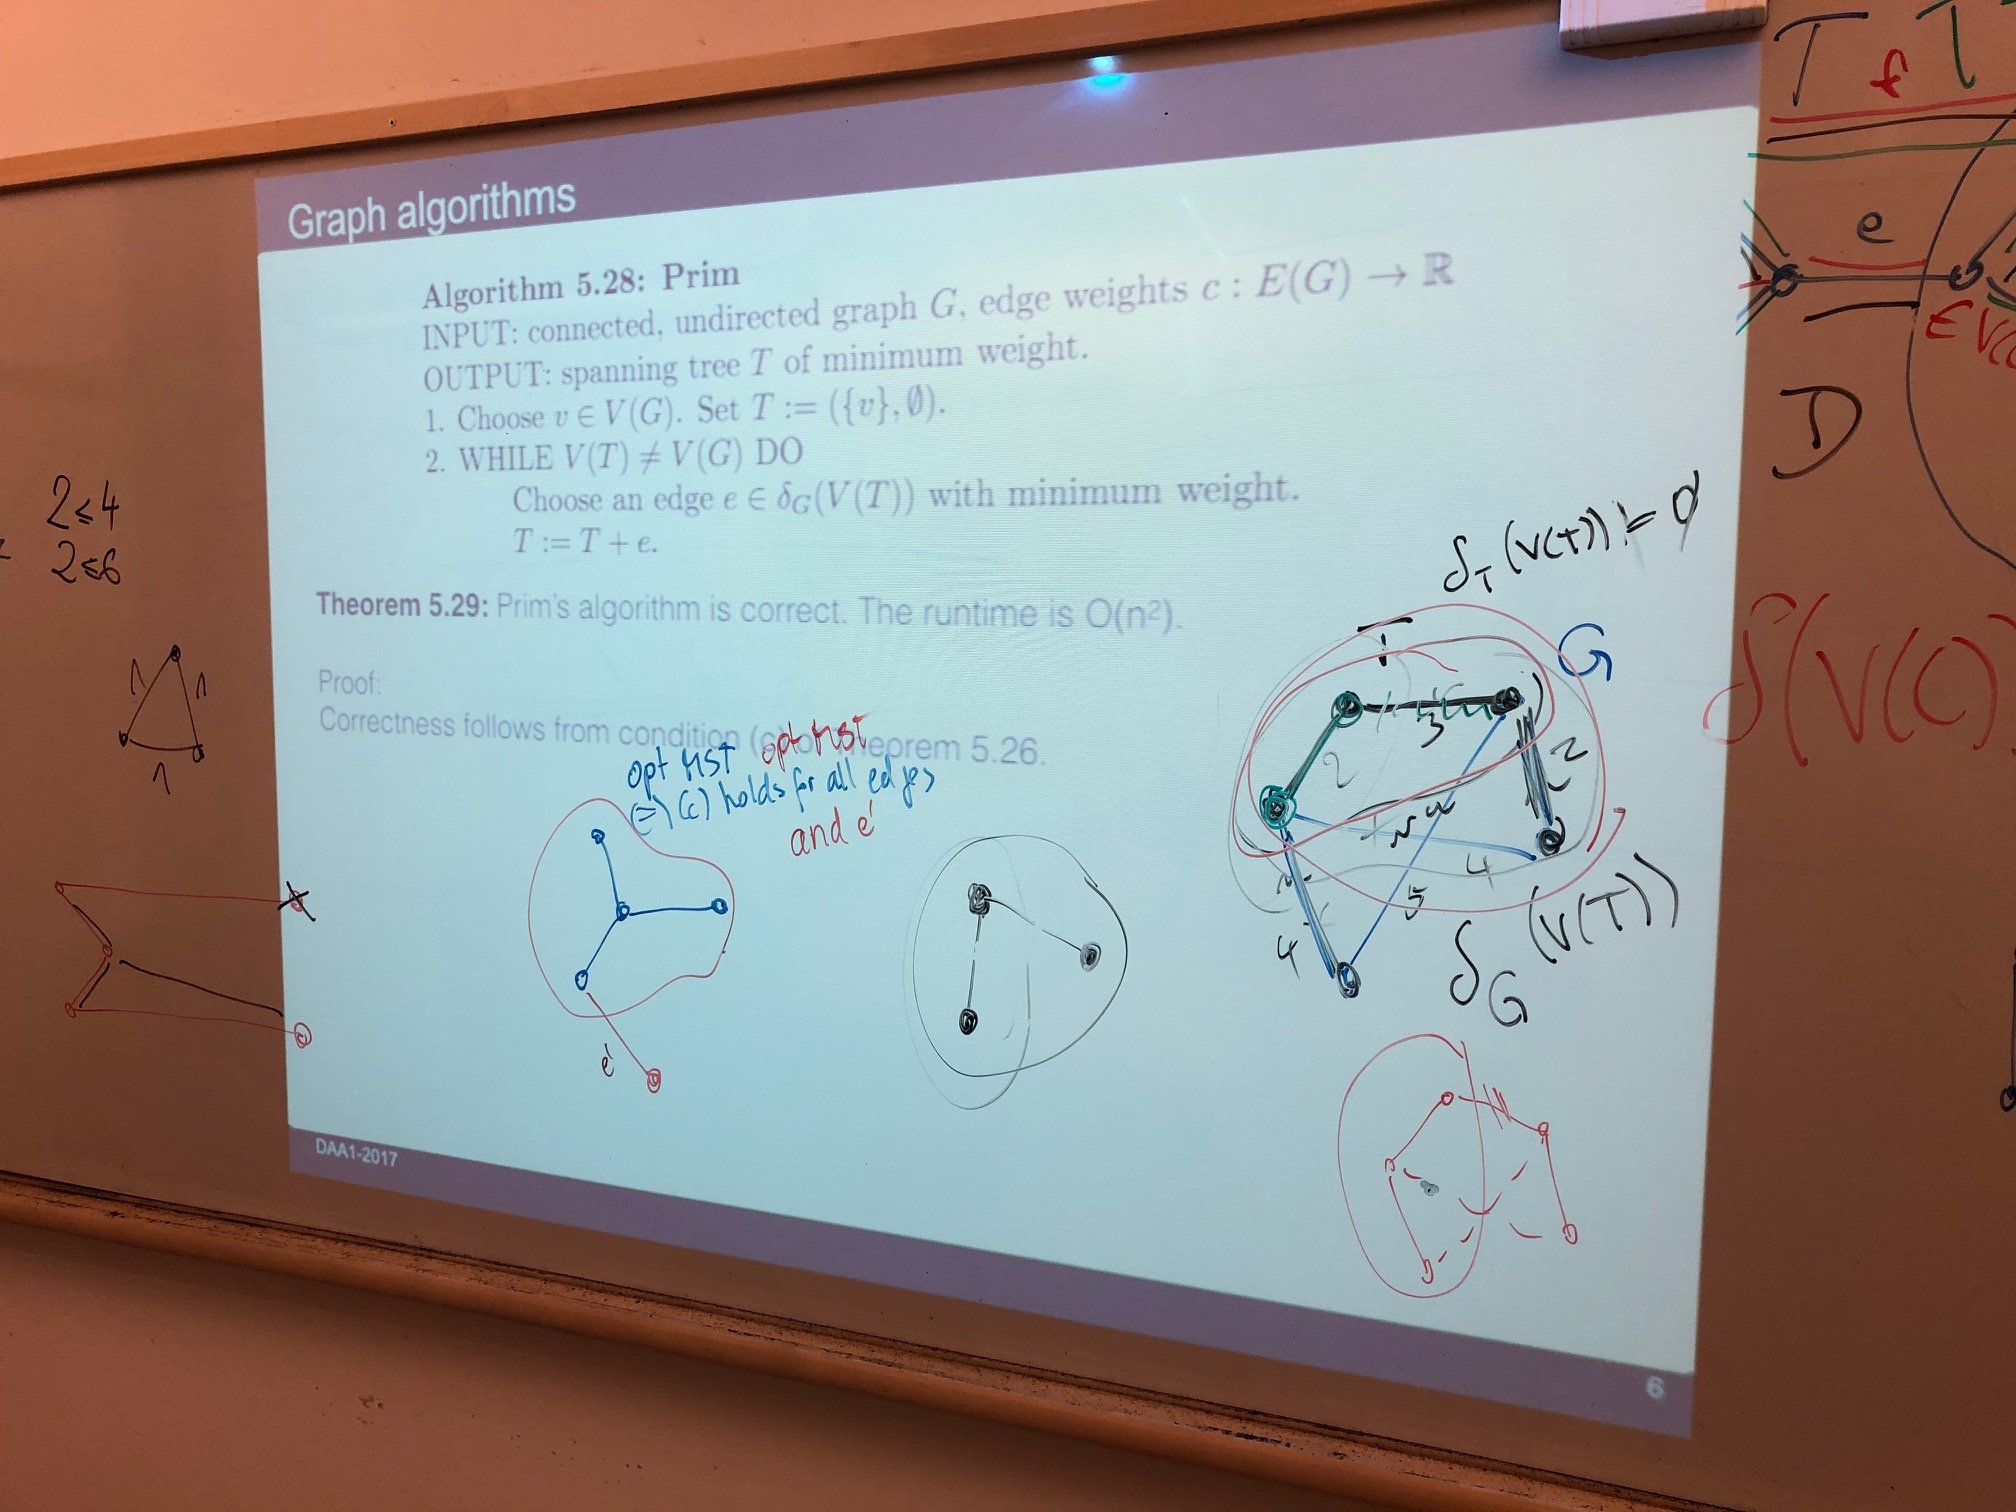 Graph algorithms
Algorithm 5.28: Prim
INPUT: connected, undirected graph G, edge weights c : E(G) → ℝ
OUTPUT: spanning tree T of minimum weight.
1. Choose v ∈ V(G). Set T := ({v}, ∅).
2. WHILE V(T) ≠ V(G) DO
Choose an edge e ∈ δG(V(T)) with minimum weight.
T := T + e.
Theorem 5.29: Prim's algorithm is correct. The runtime is O(n²).
Proof:
Correctness follows from condition (c) of Theorem 5.26.
opt MST opt MST
(=) (c) holds for all edges
and e'
e'
DAA1-2017
6
2≤4
2≤6
1 1
1
δT (V(T)) != ∅
T
G
3
2
2
4
5
4
δG (V(T))
T f T
e
∈ V(C
D
δ(V(C)